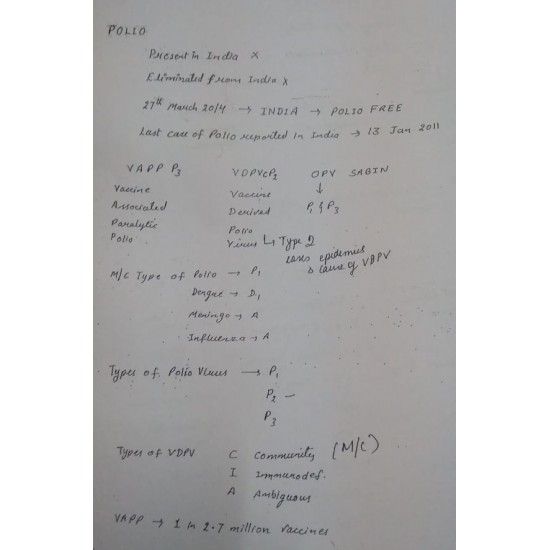 POLIO
Present in India X
Eliminated from India X
27th March 2014 → INDIA → POLIO FREE
Last case of Polio reported in India → 13 Jan 2011
VAPP P3 VDPVcP2 OPV SABIN
Vaccine Vaccine ↓
Associated Derived P1 & P3
Paralytic Polio
Polio Virus ↳ Type 2
epidemic
cause of VDPV
M/C Type of Polio → P1
Dengue → D1
Meningo → A
Influenza → A
Types of Polio Virus → P1
P2 –
P3
Types of VDPV C Community (M/C)
I Immunodef.
A Ambiguous
VAPP → 1 in 2.7 million vaccines